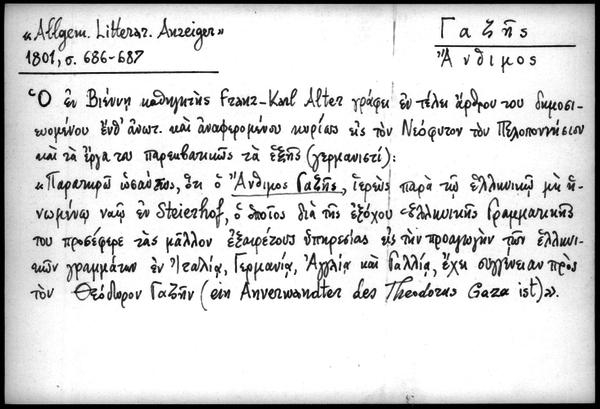 «Allgem. Litterar. Anzeiger»
1801, σ. 686-687
Γαζῆς
Ἄνθιμος
Ὁ ἐν Βιέννῃ καθηγητὴς Franz-Karl Alter γράφει ἐν τέλει ἄρθρου του δημοσι-
ευομένου ἔνθ' ἀνωτ. καὶ ἀναφερομένου κυρίως εἰς τὸν Νεόφυτον τὸν Πελοποννήσιον
καὶ τὰ ἔργα του παρεκβατικῶς τὰ ἑξῆς (γερμανιστί):
«Παρατηρῶ ὡσαύτως, ὅτι ὁ Ἄνθιμος Γαζῆς, ἱερεὺς παρὰ τῷ ἑλληνικῷ μὴ ἡ-
νωμένῳ ναῷ ἐν Steierhof, ὁ ὁποῖος διὰ τῆς ἐξόχου Ἑλληνικῆς Γραμματικῆς
του προσέφερε τὰς μᾶλλον ἐξαιρέτους ὑπηρεσίας εἰς τὴν προαγωγὴν τῶν ἑλληνι-
κῶν γραμμάτων ἐν Ἰταλίᾳ, Γερμανίᾳ, Ἀγγλίᾳ καὶ Γαλλίᾳ, ἔχει συγγένειαν πρὸς
τὸν Θεόδωρον Γαζῆν (ein Anverwandter des Theodorus Gaza ist)».